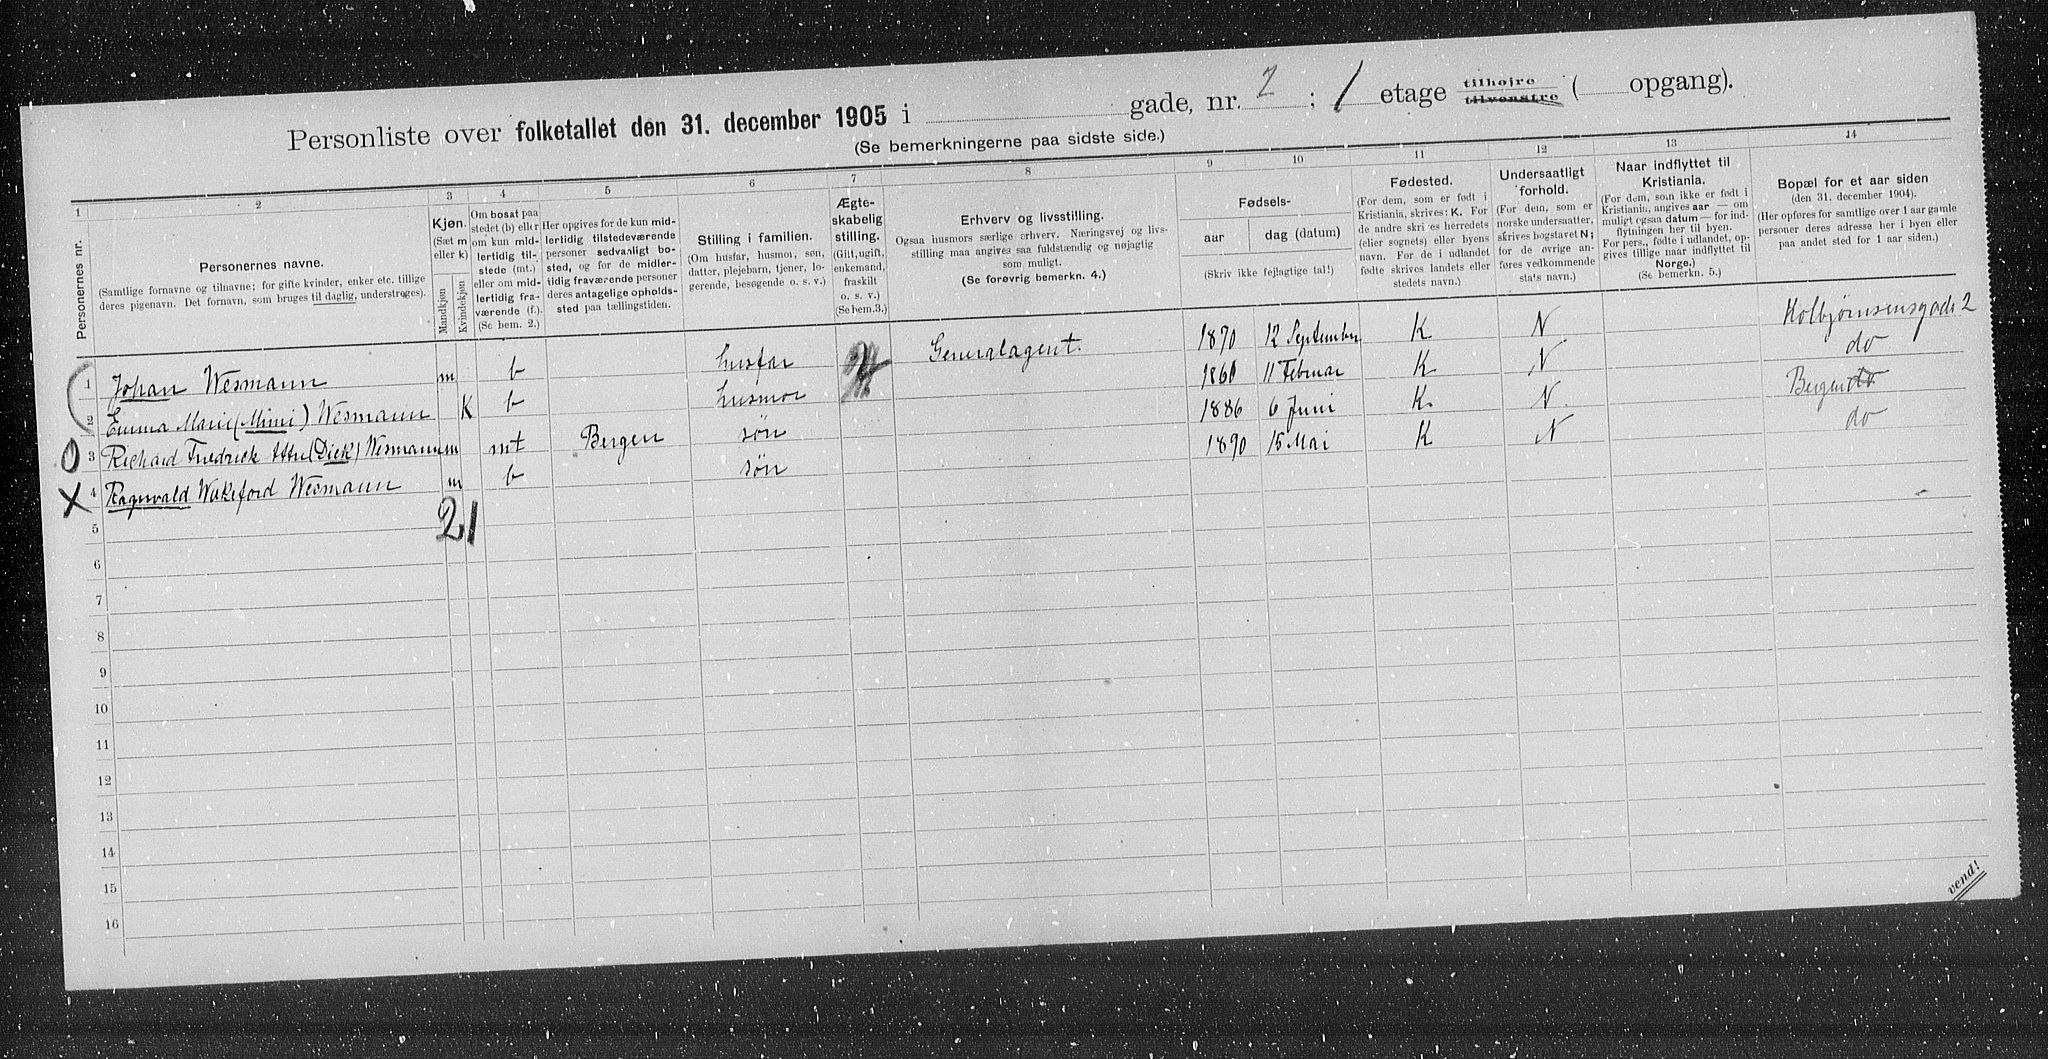 Personliste over folketallet den 31. december 1905 i gade, nr. 2 ; 1 etage tilhøjre tilvenstre ( opgang).
(Se bemerkningerne paa sidste side.)
1 2 3 4 5 6 7 8 9 10 11 12 13 14
Personernes nr.
Personernes navne.
(Samtlige fornavne og tilnavne; for gifte kvinder, enker etc. tillige
deres pigenavn. Det fornavn, som bruges til daglig, understreges).
Kjøn.
(Sæt m
eller k)
Mandkjøn
Kvindekjøn
Om bosat paa
stedet (b) eller
om kun mid-
lertidig til-
stede (mt.)
eller om mid-
lertidig fra-
værende (f.)
(Se bem. 2.)
Her opgives for de kun mid-
lertidig tilstedeværende
personer sedvanligt bo-
sted, og for de midler-
tidig fraværende personer
deres antagelige opholds-
sted paa tællingstiden.
Stilling i familien.
(Om husfar, husmor, søn,
datter, plejebarn, tjener, lo-
gerende, besøgende o. s. v.)
Ægte-
skabelig
stilling.
(Gift, ugift,
enkemand,
fraskilt
o. s. v.)
(Se bem. 3.)
Erhverv og livsstilling.
Ogsaa husmors særlige erhverv. Næringsvej og livs-
stilling maa angives saa fuldstændig og nøjagtig
som muligt.
(Se forøvrig bemerkn. 4.)
Fødsels-
aar dag (datum)
(Skriv ikke fejlagtige tal!)
Fødested.
(For dem, som er født i
Kristiania, skrives: K. For
de andre skrives herredets
(eller sognets) eller byens
navn. For de i udlandet
fødte skrives landets eller
stedets navn.)
Undersaatligt
forhold.
(For dem, som er
norske undersaatter,
skrives bogstavet N;
for de øvrige an-
føres vedkommende
stats navn.)
Naar indflyttet til
Kristiania.
(For dem, som ikke er født i
Kristiania, angives aar — om
muligt ogsaa datum — for ind-
flytningen her til byen.
For pers., fødte i udlandet, op-
gives tillige naar indflyttet til
Norge.)
(Se bemerkn. 5.)
Bopæl for et aar siden
(den 31. december 1904).
(Her opføres for samtlige over 1 aar gamle
personer deres adresse her i byen eller
paa andet sted for 1 aar siden.)
1 Johan Wesmann m b husfar Generalagent. 1870 12 September K N Holbjørnsensgade 2
2 Emma Marie (Mimi) Wesmann K b husmor 11 Februar K N do
0 3 Richard Fredrick (Dick) Wesmann m mt Bergen søn 1886 6 Juni K. N. Bergen do
X 4 Ragnvald Wakeford Wesmann m b søn 1890 15 Mai K N do
21
5
6
7
8
9
10
11
12
13
14
15
16
vend!